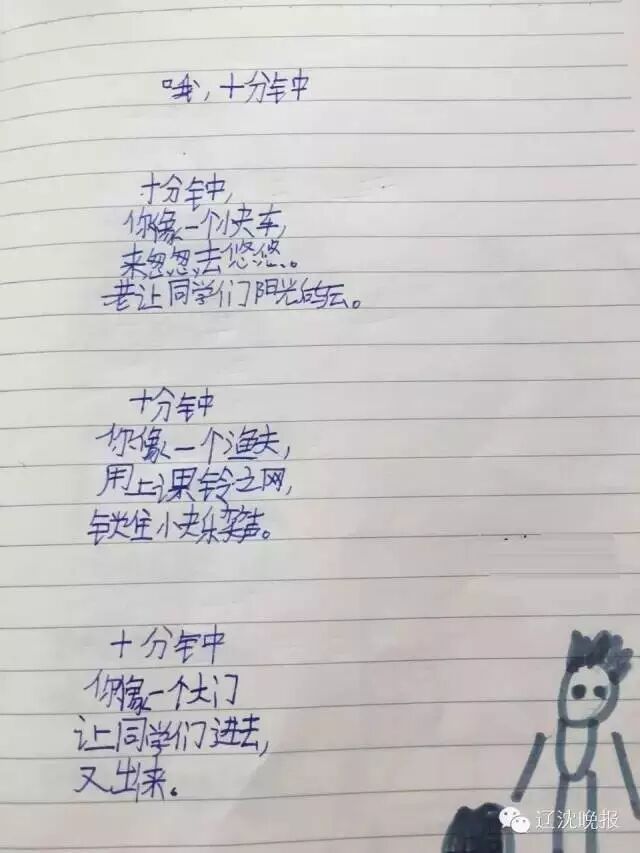 哦,十分钟
十分钟,
你像一个快车,
来忽忽,去悠悠。
让同学们阳光
十分钟
你像一个渔夫,
用上课铃之网,
锁住快乐笑声。
十分钟
你像一个大门
让同学们进去,
又出来。
辽沈晚报